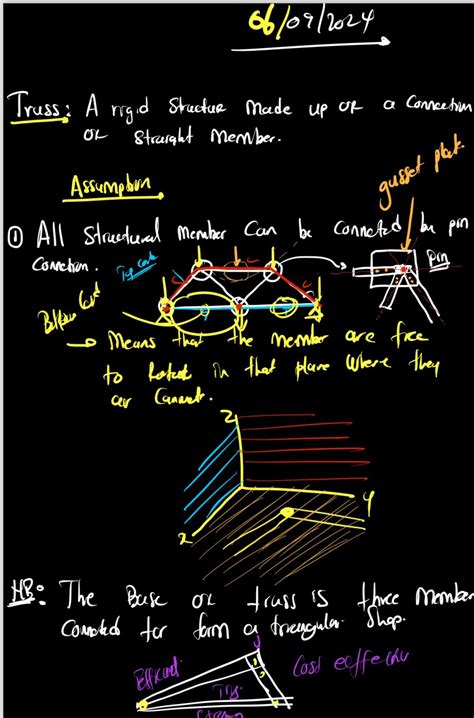 06/09/2024
Truss: A rigid Structure Made up of a Connection
of Straight Member.
Assumption
gusset plate
① All Structural member Can be Connected by pin
Connection.
Top Cord
pin
Bottom Cord
→ Means that the member are free
to Rotate in that plane where they
are Connected.
Z
Y
X
NB: The Basic of truss is three Member
Connected to form a triangular Shap.
Efficient
Cost effective